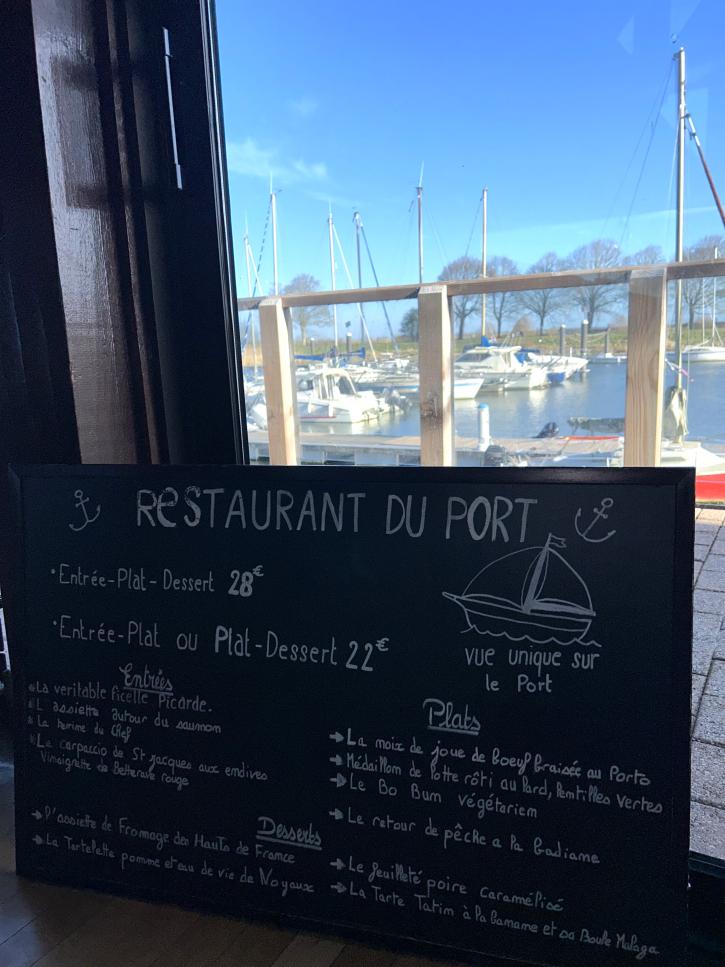 RESTAURANT DU PORT
• Entrée-Plat-Dessert 28€
• Entrée-Plat ou Plat-Dessert 22€
vue unique sur
le Port
Entrées
La veritable ficelle Picarde.
L assiette autour du saumon
La terrine du Chef
Le carpaccio de St jacques aux endives
Vinaigrette de Betterave rouge
Plats
La noix de joue de boeuf braisée au Porto
Médaillon de lotte rôti au lard, lentilles vertes
Le Bo Bun végétarien
Le retour de pêche a la badiane
Desserts
L'assiette de Fromage des Hauts de France
La Tartelette pomme et eau de vie de Noyaux
Le feuilleté poire caramélisé
La Tarte Tatin à la banane et sa Boule Malaga